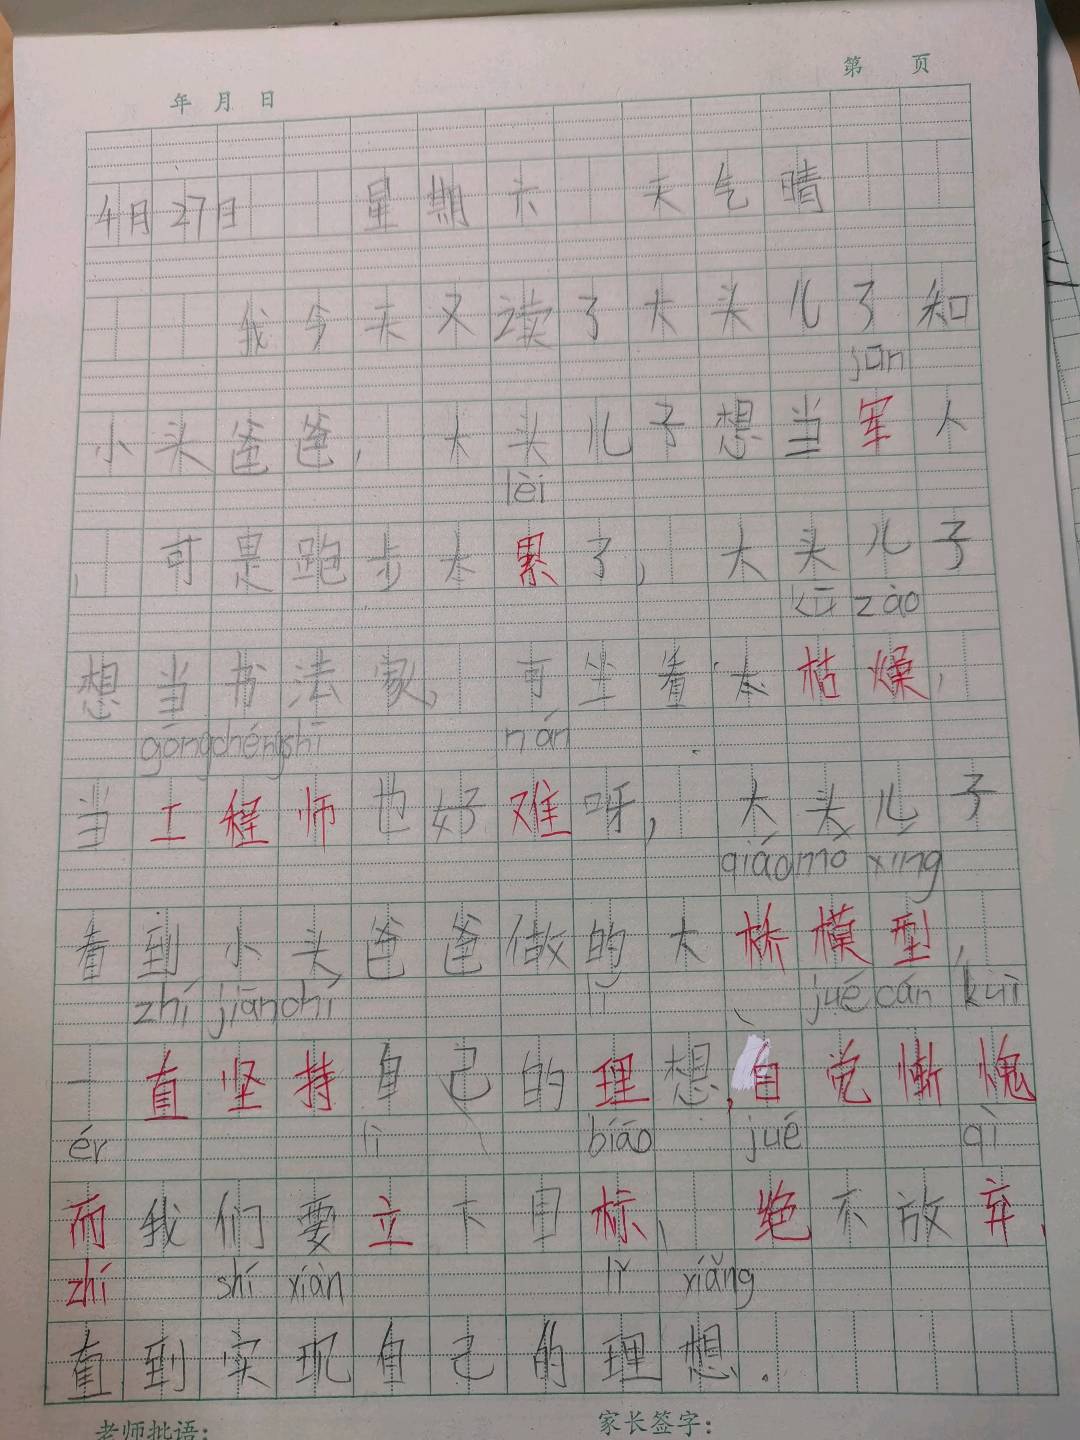 第 页
年 月 日
4月27日 星期六 天气晴
我今天又读了大头儿了知
jūn
小头爸爸,大头儿子想当军人
lèi
,可是跑步太累了,大头儿子
kū zào
想当书法家,可坐着太枯燥,
gōng chéng shī nán
当工程师也好难呀,大头儿子
qiáo mó xíng
看到小头爸爸做的大桥模型,
zhí jiān chí lǐ jué cán kuì
一直坚持自己的理想,自觉惭愧
ér lì biāo jué qì
而我们要立下目标,绝不放弃,
zhí shí xiàn lǐ xiǎng
直到实现自己的理想.
老师批语: 家长签字: